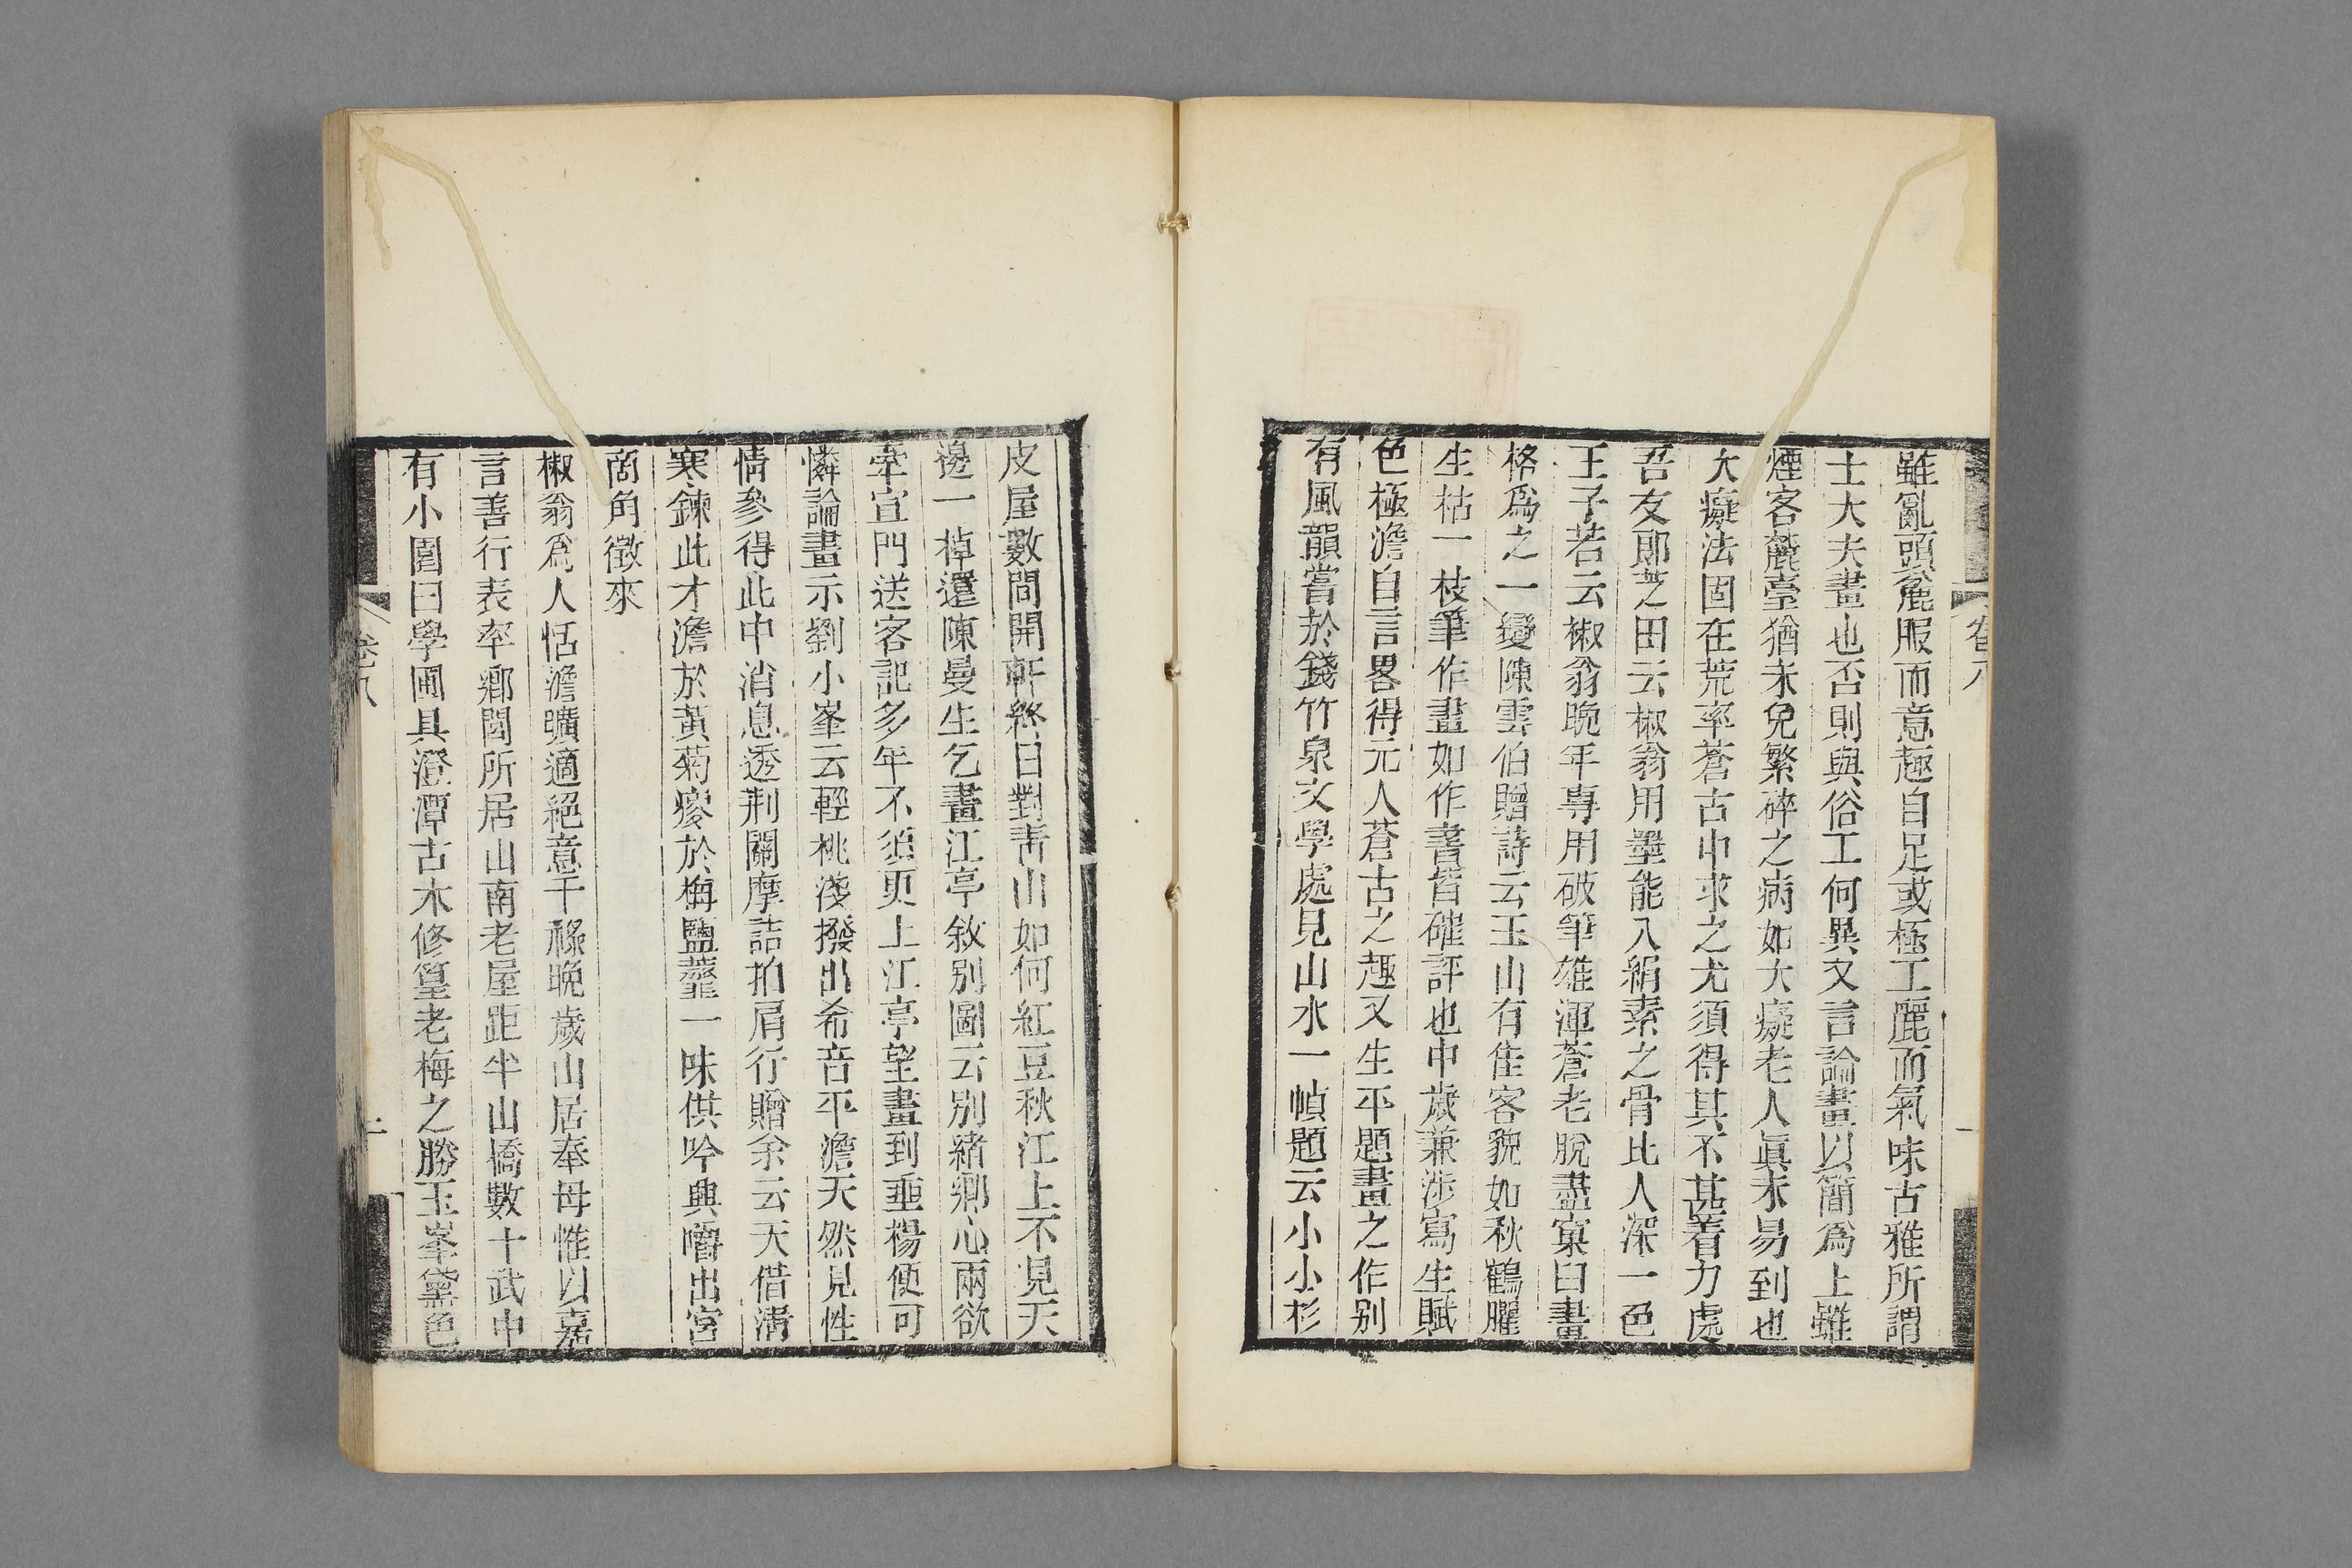 雖亂頭麄服而意趣自足或極工麗而氣味古雅所謂
士大夫畫也否則與俗工何異又言論畫以簡爲上雖
煙客麓臺猶未免繁碎之病如大癡老人眞未易到也
大癡法固在荒率蒼古中求之尤須得其不甚着力處
吾友郎芝田云椒翁用墨能入絹素之骨比人深一色
王子若云椒翁晩年專用破筆雄渾蒼老脫盡窠臼畫
格爲之一變陳雲伯贈詩云玉山有隹客貌如秋鶴臞
生枯一枝筆作畫如作書皆確評也中歲兼涉寫生賦
色極澹自言畧得元人蒼古之趣又生平題畫之作别
有風韻嘗於錢竹泉文學處見山水一幀題云小小杉
卷八
皮屋數間開軒終日對靑山如何紅豆秋江上不見天
邊一棹還陳曼生乞畫江亭敘别圖云别緒鄕心兩欲
牽宣門送客記多年不須更上江亭望畫到垂楊便可
憐論畫示劉小峯云輕桃淺撥出希音平澹天然見性
情參得此中消息透荆關摩詰拍肩行贈余云天借淸
寒鍊此才澹於黃菊瘦於梅鹽虀一味供吟興嚼出宮
商角徵來
椒翁爲人恬澹曠適絕意干祿晩歲山居奉母惟以嘉
言善行表率鄕閭所居山南老屋距半山橋數十武中
有小園曰學圃具澄潭古木修篁老梅之勝玉峯黛色
卷八